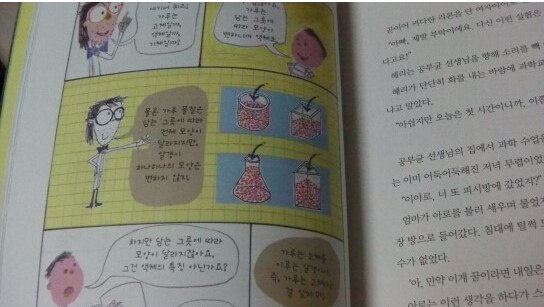 가루는
고체일까,
액체일까,
기체일까?
담는 그릇에
따라 모양이
변하니까 액체요.
물론 가루 물질은
담는 그릇에 따라
전체 모양이
달라지지만,
알갱이
하나하나의 모양은
변하지 않지.
하지만 담는 그릇에 따라
모양이 달라지잖아요.
그건 액체의 특징 아닌가요?
가루는 고체를
이루는 알갱이
즉, 가루는 고체
"아빠, 제발 부탁이에요. 다신 이런 실험은
다고요!"
혜리는 공부균 선생님을 향해 소리를 빽
혜리가 단단히 화를 내는 바람에 과학교
나고 말았다.
"아쉽지만 오늘은 첫 시간이니까, 이쯤
공부균 선생님의 집에서 과학 수업을
는 이미 어둑어둑해진 저녁 무렵이었
"이아로, 너 또 피시방에 갔었지?"
엄마가 아로를 불러 세우며 물었지
장 방으로 들어갔다. 침대에 털썩
수가 없었다.
'아, 만약 이게 꿈이라면 내일은
아로는 이런 생각을 하다가 스